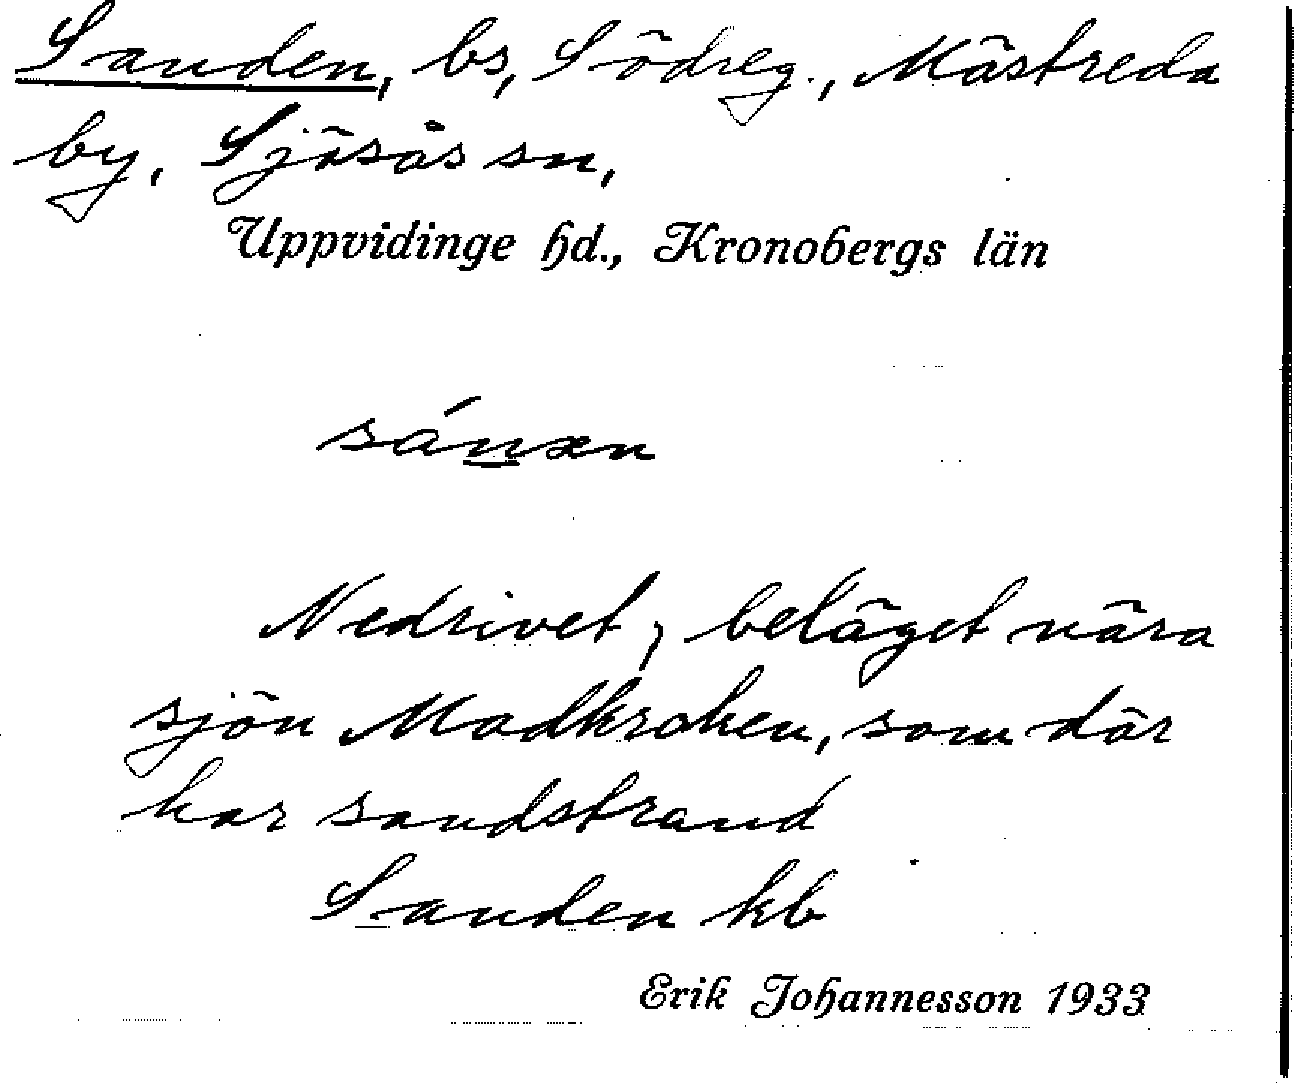 Sanden, bs, Södreg., Mästreda
by, Sjösås sn,
Uppvidinge hd., Kronobergs län
sánən
Nedrivet, beläget nära
sjön Madkroken, som där
har sandstrand
Sanden kb
Erik Johannesson 1933